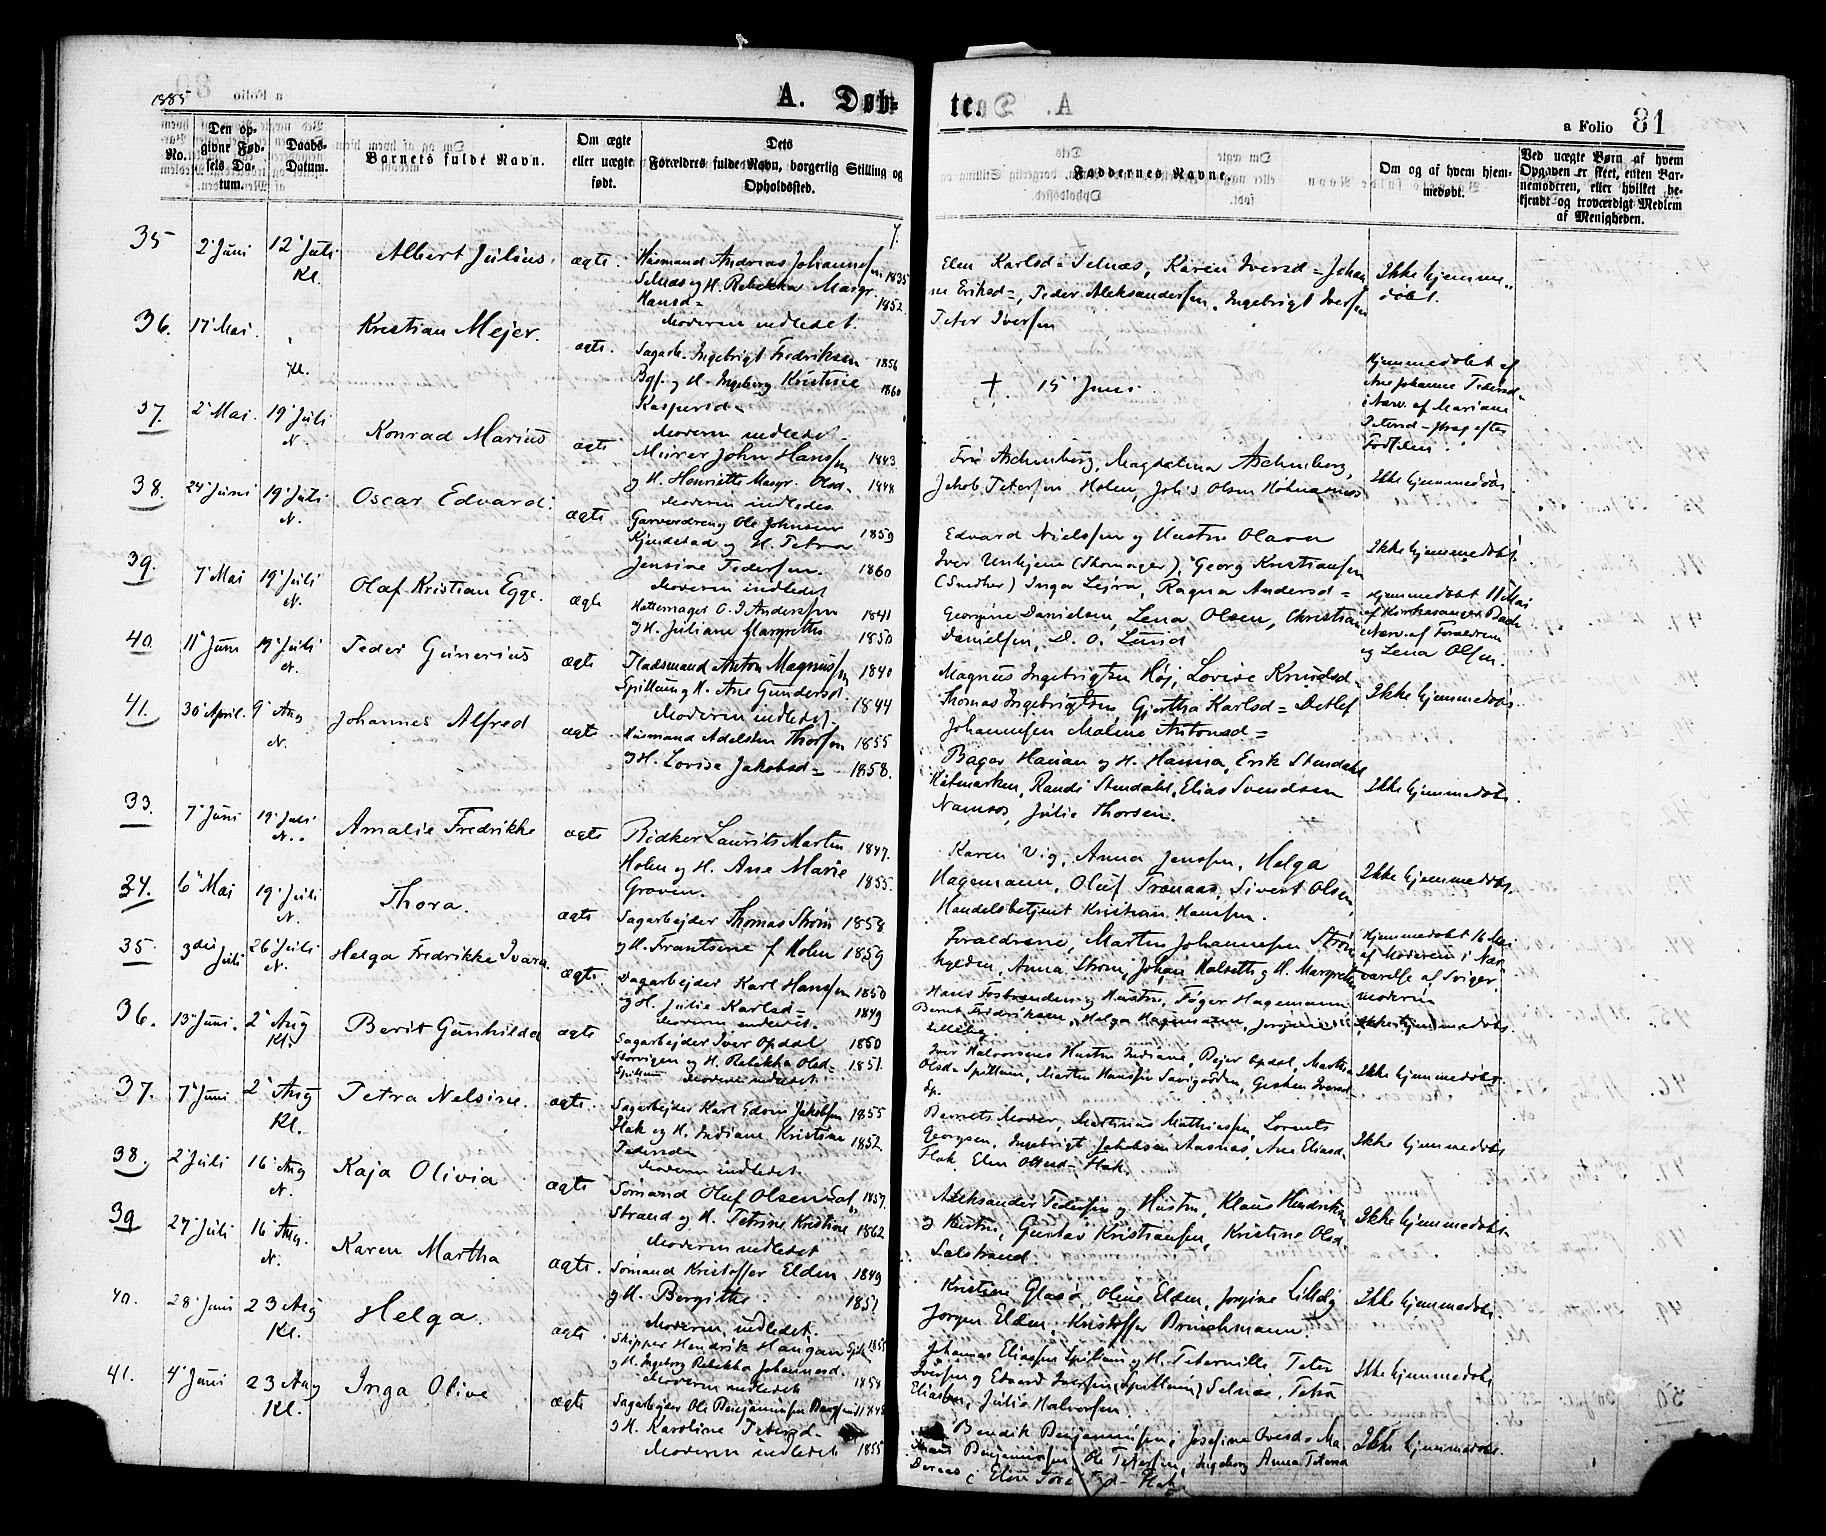 1885
A. Døb=
te.
a Folio 81
No.
Den op-
givne Fød-
sels Da-
tum.
Daabs-
Datum.
Barnets fulde Navn.
Om ægte
eller uægte
født.
Dets
Forældres fulde Navn, borgerlig Stilling og
Opholdssted.
Faddernes Navne.
Om og af hvem hjem-
medøbt.
Ved uægte Børn af hvem
Opgaven er skeet, enten Bar-
nemoderen, eller hvilket be-
kjendt og troværdigt Medlem
af Menigheden.
35 2 Juni 12 Juli Kl. Albert Julius. ægte.
Husmand Andreas Johannesen 1835
Selnæs og H. Rebekka Margr. 1852
Hansd=
Moderen indledet.
Elen Karlsd= Selnæs, Karen Iversd= Johan
ne Eriksd=, Peder Aleksandersen, Ingebrigt Iversen
Peter Iversen
Ikke hjemme
døbt.
36. 17 Mai Kl. Kristian Mejer. ægte.
Sagarb. Ingebrigt Fredriksen 1856
Bgf. og H. Ingeborg Kristine 1860
Kaspersd=
Moderen indledet.
† 15 Juni
Hjemmedøbt af
Ane Johanna Pedersd=
i Nærv. af Mariane
Petersd= strax efter
Fødselen.
37. 2 Mai. 19 Juli N. Konrad Marius ægte
Murer John Hansen 1843
og H. Henriette Margr. Olsd= 1848
Moderen indledet
Frù Aschenberg, Magdalena Aschenberg,
Jakob Petersen Holen, Johs Olsen
Ikke hjemmedøbt.
38. 24 Juni 19 Juli N. Oscar Edvard. ægte
Garverdreng Ole Johnsen 1859
Kjendestad og H. Petra
Jensine Pedersen. 1860
Moderen indledet
Edvard Nielssen og Hustru Olava
Iver Unhjem Georg Kristiansen
(Snedker) Inga Lejra, Ragna Andersd=
Ikke hjemmedøbt
39. 7 Mai 19 Juli N. Olaf Kristian Egge. ægte
Hattemager O. J. Anderssen 1841
og H. Juliane Margrethe 1850
Georgine Danielsen, Lena Olsen, Christian
Danielsen, D. O. Lund
Hjemmedøbt 11 Mai
af Kirkesanger Bach
i Nærv. af Forældrene
og Lena Olsen.
40. 11 Juni 19 Juli N. Peder Gunerius ægte
Pladsmand Anton Magnussen 1840
Spillum og H. Ane Gundersd. 1844
Moderen indledet.
Magnus Ingebrigtsen Høj, Lovise Knudsd=
Thomas Ingebrigtsen, Gjertha Karlsd= Detlef
Johannesen Maline Antonsd=
Ikke hjemmedøbt.
41. 30 April. 9 Aug N. Johannes Alfred ægte.
Husmand Adelsten Thorsen 1855
og H. Lovise Jakobsd= 1858.
Bager Hanan og H. Hanna, Erik Stendahl
Randi Stendahl, Elias Svendsen
Namsos, Julie Thorsen.
Ikke hjemmedøbt.
33. 7 Juni 19 Juli N. Amalie Fredrikke ægte
Bødker Laurits Martin 1847.
Holen og H. Ane Marie 1855.
Groven.
Karen Vig, Anna Jenssen, Helga
Hagemann, Oluf Tranaas, Sivert Olsen,
Handelsbetjent Kristian Hanssen.
Ikke hjemmedøbt.
34. 6 Mai 19 Juli N. Thora. ægte
Sagarbejder Thomas Strøm 1858
og H. Frantsine f. Holen 1859
Forældrene, Martin Johannessen Strøm
Anna Strøm, Johan og H. Margrethe
Hjemmedøbt 16 Mai
af Moderen i Nær-
værelse af Sviger-
moderen
35. 3die Juli 26 Juli N. Helga Fredrikke Ivara ægte.
Dagarbejder Karl Hanssen 1850
og H. Julie Karlsd= 1849
Moderen indledet.
Hans Fosbrænden og Hustru, Føger Hagemann
Bernt Fredriksen, Helga Hagemann, Jorgine
Lilleby.
Ikke hjemmedøbt.
36. 13 Juni. 2 Aug Kl. Berit Gunhilda ægte
Sagarbejder Iver Opdal 1850
Storvigen og H. Rebekka Olsd= 1851.
Spillum Moderen indledet.
Iver Halvorsens Hustru Indiane, Pejer Opdal, Martha
Olsd= Spillum, Martin Hanssen Iversd=
Sp.
Ikke hjemmedøbt.
37. 7 Juni 2 Aug Kl. Petra Nelsine. ægte.
Sagarbejder Karl Edvin Jakobsen 1855
Hak og H. Indiane Kristine 1852
Pedersd=
Moderen indledet.
Barnets Moder, Martinus Mathiesen, Lorents
Georgsen, Ingebrigt Jakobsen Aasnæs, Ane Eliasd=
Hak, Elen Olsd= Hak.
Ikke hjemmedøbt
38. 2 Juli 16 Aug N. Kaja Olivia ægte
Sømand Oluf Olsen Sal= 1857.
strand og H. Petrine Kristine 1862
Moderen indledet
Aleksander Pedersen og Hustru, Klaus Hendriksen
og Hustru, Gustav Kristiansen, Kristine Olsd.
Salstrand.
Ikke hjemmedøbt.
39 27 Juli 16 Aug. N. Karen Martha ægte.
Sømand Kristoffer Elden 1849
og H. Bergitte. 1851
Moderen indledet.
Kristine Glasø, Oline Elden, Jorgine Lilleby
Jørgen Elden, Kristoffer Brinchmann.
Ikke hjemmedøbt.
40. 28 Juni 23 Aug Kl. Helga. ægte.
Skipper Hendrik Haugan 1855
og H. Ingeborg Rebekka Johannesd. 1858
Moderen indledet
Johannes Eliassen Spillum og H. Peternille Peter
Iversen og Edvard Iversen (Spillum) Selnæs, Petra
Eliasen, Julie Halvorsen.
Ikke hjemmedøbt
41. 4 Juni 23 Aug Kl. Inga Olive ægte
Sagarbejder Ole Benjaminsen 1848
og H. Karoline Petersd= 1855
Moderen indledet
Bendik Benjaminsen, Josefine Ovesd= Ma-
Benjaminsen, Ole Petersen, Ingeborg Anna Petersd
Elen Hak.
Ikke hjemmedøbt.